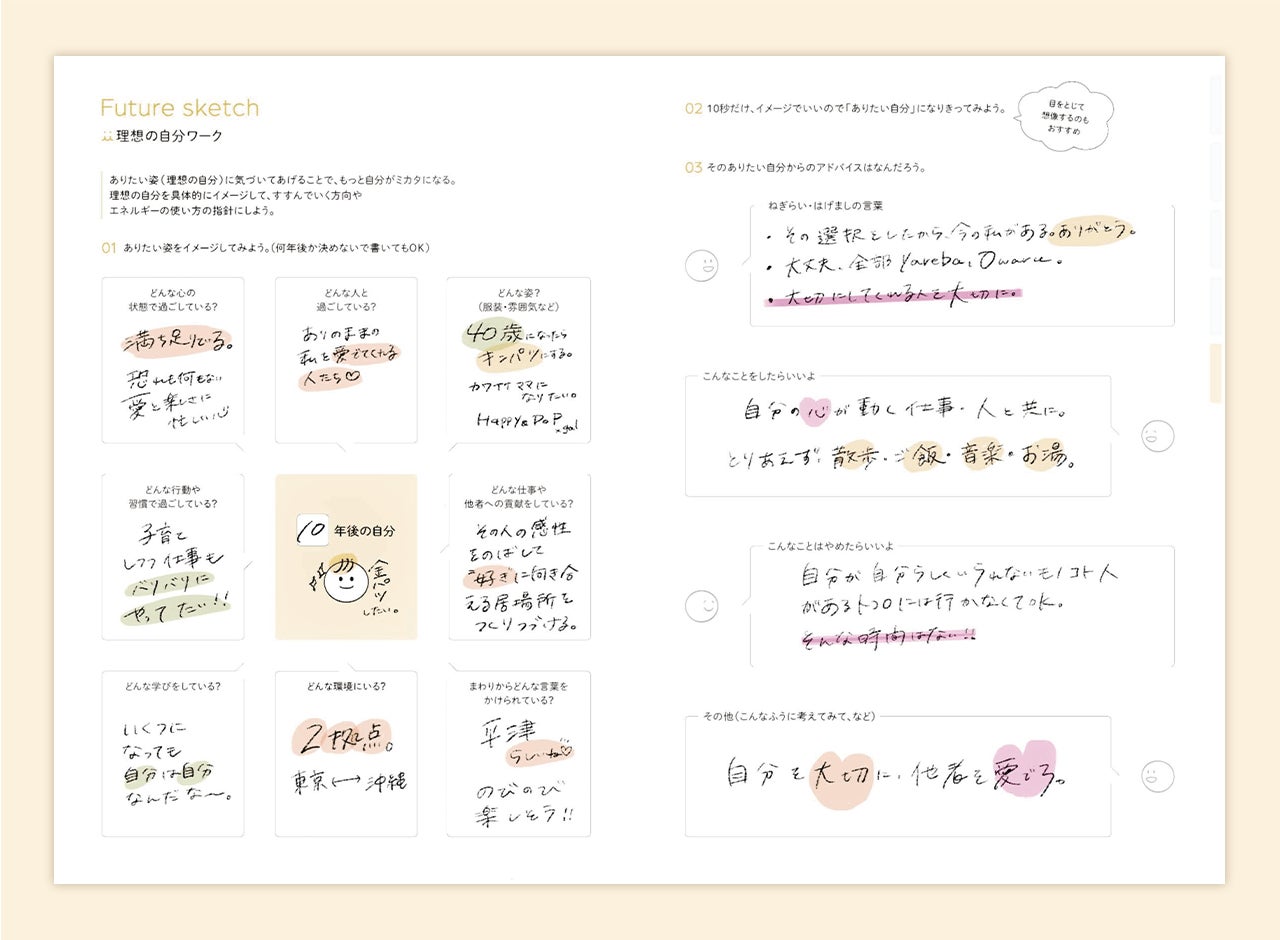 Future sketch
理想の自分ワーク
ありたい姿(理想の自分)に気づいてあげることで、もっと自分がミカタになる。
理想の自分を具体的にイメージして、すすんでいく方向や
エネルギーの使い方の指針にしよう。
01 ありたい姿をイメージしてみよう。(何年後か決めないで書いてもOK)
どんな心の
状態で過ごしている?
満ち足りてる。
恐れも何もない
愛と楽しさに
忙しい
どんな人と
過ごしている?
ありのままの
私を愛でてくれる
人たち♡
どんな姿?
(服装・雰囲気など)
40歳になったら
キンパツにする。
カワイイママに
なりたい。
Happy & PoP
×gal
どんな行動や
習慣で過ごしている?
子育て
しつつ仕事も
バリバリに
やってたい!!
10 年後の自分
金パツ
したい。
どんな仕事や
他者への貢献をしている?
その人の感性
をのばして
"好き"に向き合
える居場所を
つくりつづける。
どんな学びをしている?
いくつに
なっても
自分は自分
なんだな〜。
どんな環境にいる?
2拠点。
東京⟷沖縄
まわりからどんな言葉を
かけられている?
平津
らしいね♡
のびのび
楽しそう!!
02 10秒だけ、イメージでいいので「ありたい自分」になりきってみよう。
目をとじて
想像するのも
おすすめ
03 そのありたい自分からのアドバイスはなんだろう。
ねぎらい・はげましの言葉
・その選択をしたから、今の私がある。ありがとう。
・大丈夫、全部 Yareba, Owaru.
・大切にしてくれる人を大切に。
こんなことをしたらいいよ
自分の心が動く仕事・人と共に。
とりあえず、散歩・ご飯・音楽・お湯。
こんなことはやめたらいいよ
自分が自分らしくいられないモノコト人
があるトコロには行かなくてOK。
そんな時間はない!!
その他(こんなふうに考えてみて、など)
自分を大切に、他者を愛でろ。